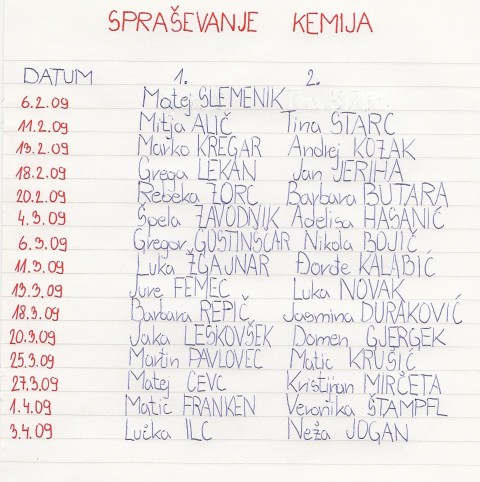 SPRAŠEVANJE KEMIJA
DATUM 1. 2.
6.2.09 Matej SLEMENIK
11.2.09 Mitja ALIČ Tina STARC
13.2.09 Marko KREGAR Andrej KOZAK
18.2.09 Grega LEKAN Jan JERIHA
20.2.09 Rebeka ZORC Barbara BUTARA
4.3.09 Špela ZAVODNIK Adelisa HASANIĆ
6.3.09 Gregor GOSTINŠČAR Nikola BOJIČ
11.3.09 Luka ŽGAJNAR Đorđe KALABIĆ
13.3.09 Jure FEMEC Luka NOVAK
18.3.09 Barbara REPIČ Jasmina DURAKOVIĆ
20.3.09 Jaka LESKOVŠEK Domen GJERGEK
25.3.09 Martin PAVLOVEC Matic KRUŠIČ
27.3.09 Matej CEVC Kristijan MIRČETA
1.4.09 Matic FRANKEN Veronika ŠTAMPFL
3.4.09 Lučka ILC Neža JOGAN